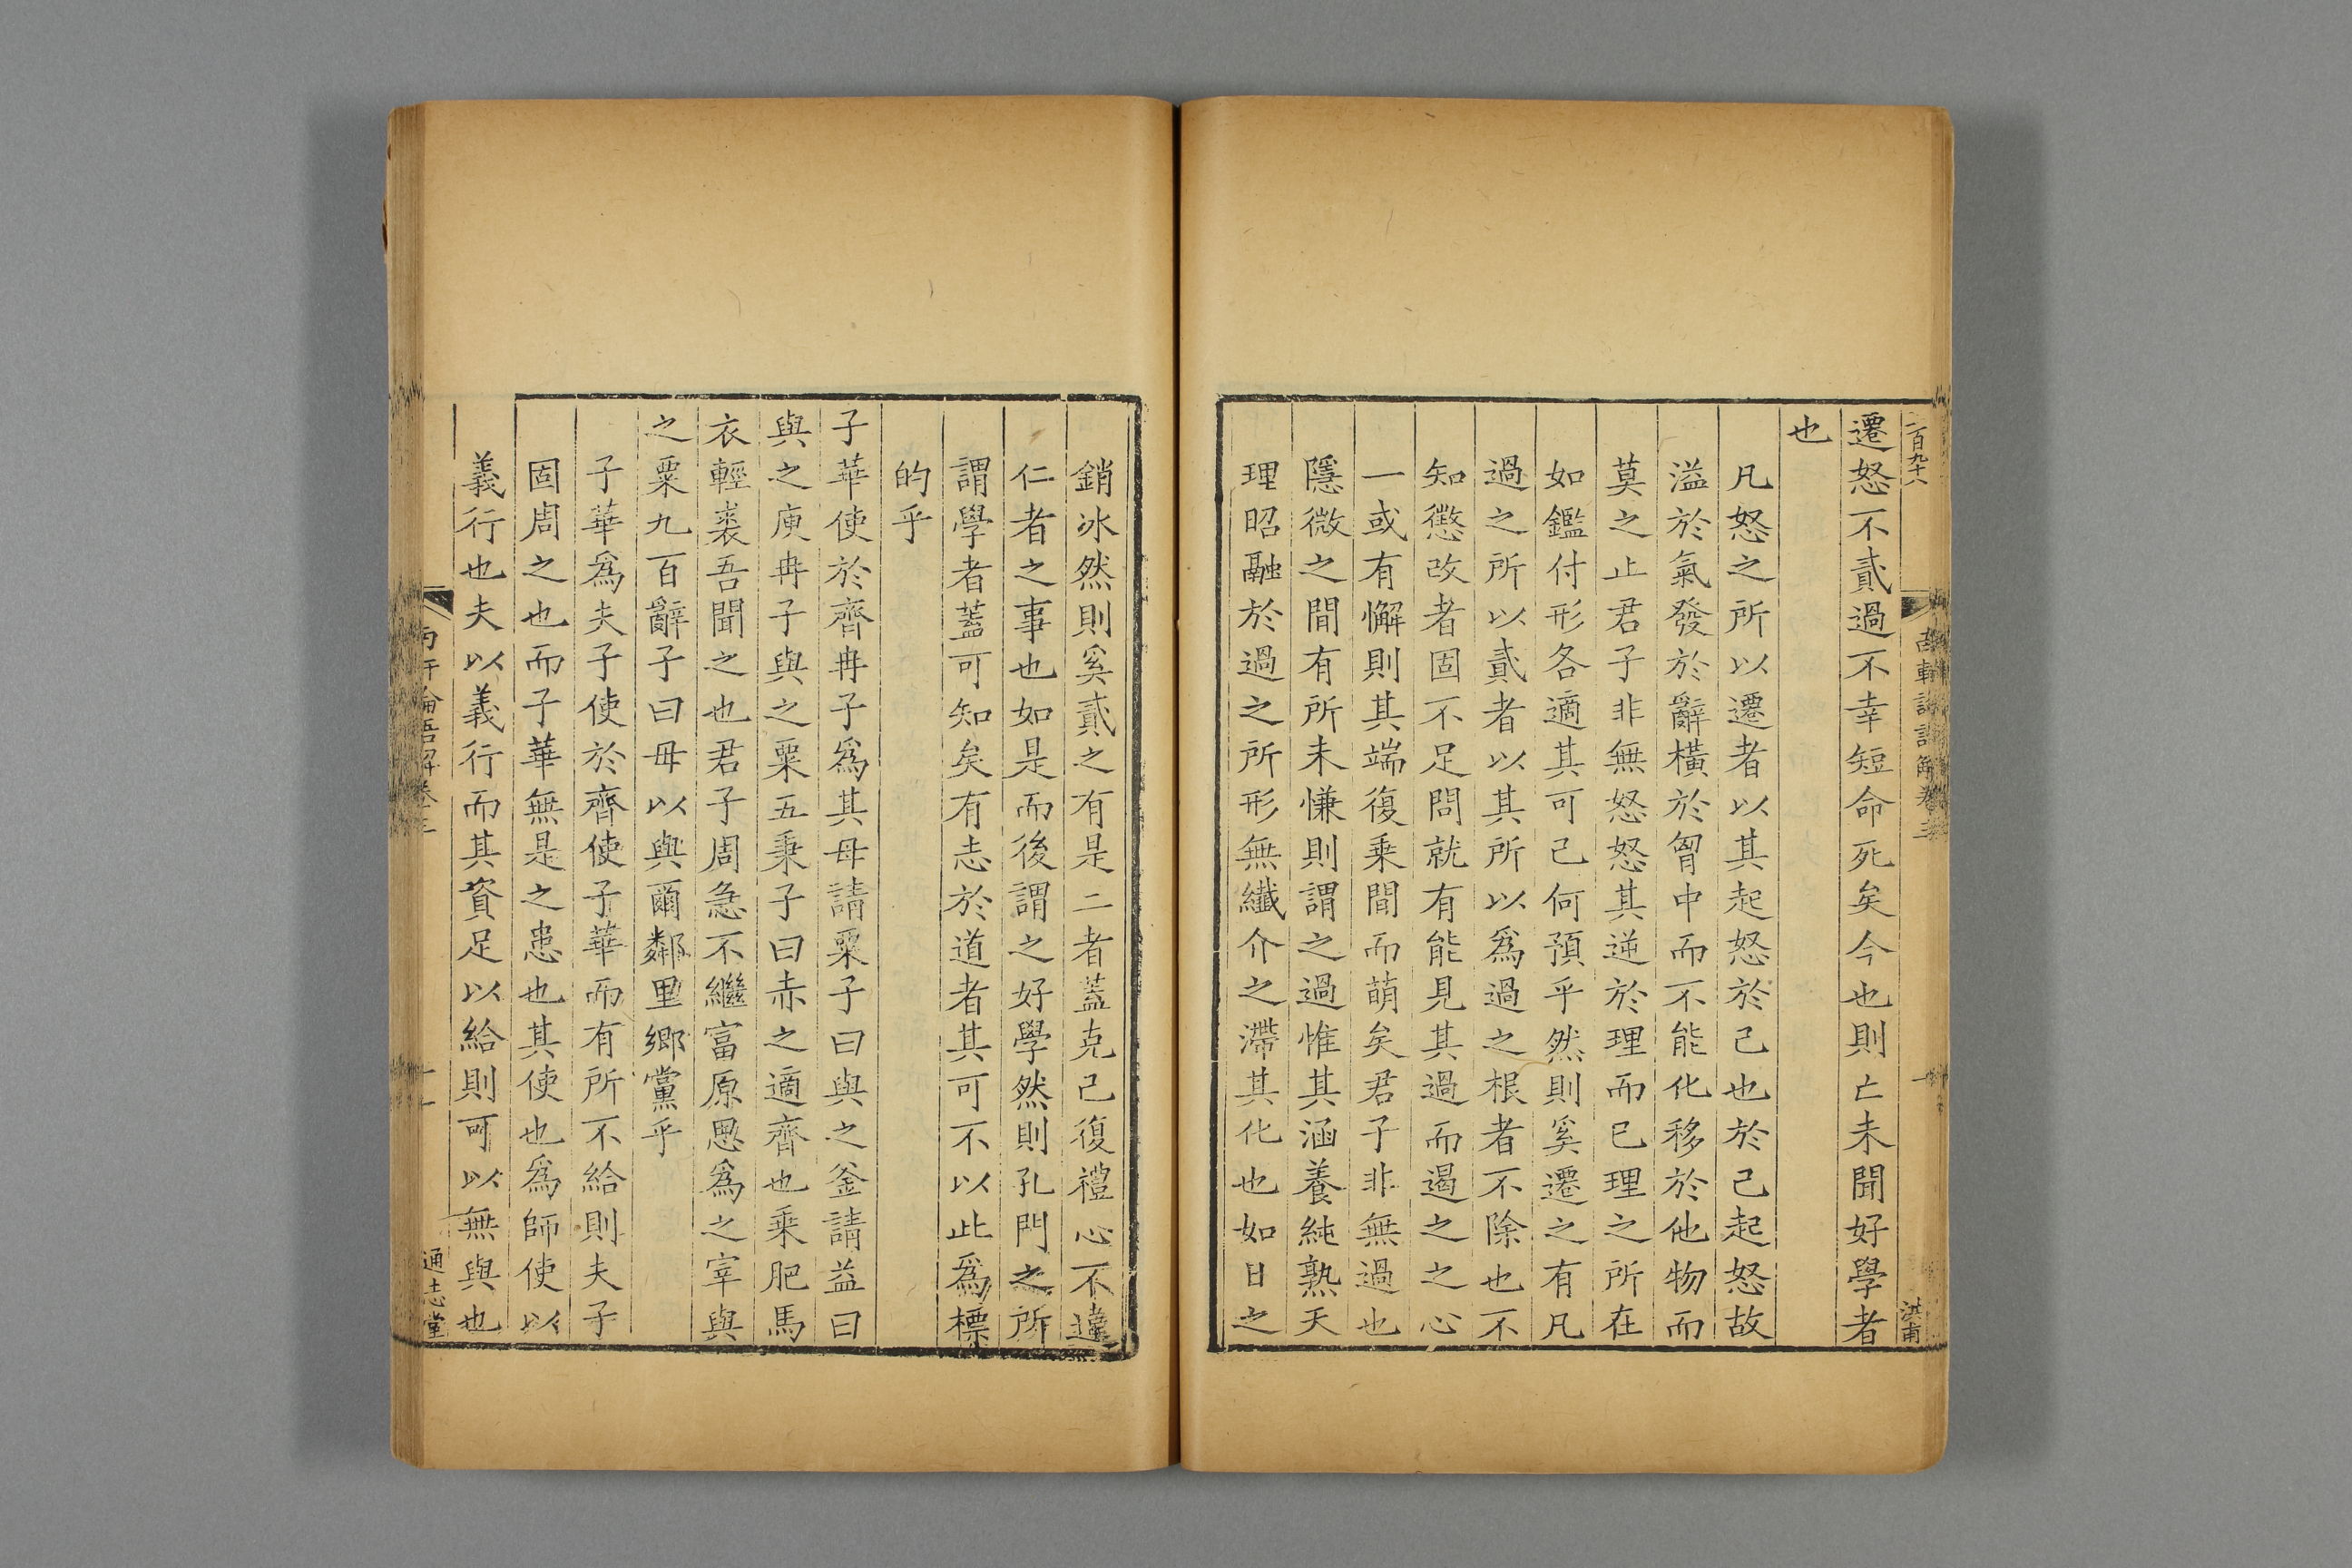 二百九十八
洪甫
遷怒不貳過不幸短命死矣今也則亡未聞好學者
也
凡怒之所以遷者以其起怒於己也於己起怒故
溢於氣發於辭橫於胷中而不能化移於他物而
莫之止君子非無怒怒其逆於理而已理之所在
如鑑付形各適其可己何預乎然則奚遷之有凡
過之所以貳者以其所以爲過之根者不除也不
知懲改者固不足問就有能見其過而遏之之心
一或有懈則其端復乗間而萌矣君子非無過也
隱微之間有所未慊則謂之過惟其涵養純熟天
理昭融於過之所形無纎介之滯其化也如日之
銷冰然則奚貳之有是二者蓋克己復禮心不違
仁者之事也如是而後謂之好學然則孔門之所
謂學者蓋可知矣有志於道者其可不以此爲標
的乎
子華使於齊冉子爲其母請粟子曰與之釜請益曰
與之庾冉子與之粟五秉子曰赤之適齊也乗肥馬
衣輕裘吾聞之也君子周急不繼富原思爲之宰與
之粟九百辭子曰毋以與爾鄰里鄉黨乎
子華爲夫子使於齊使子華而有所不給則夫子
固周之也而子華無是之患也其使也爲師使以
義行也夫以義行而其資足以給則可以無與也
論語解卷三
通志堂